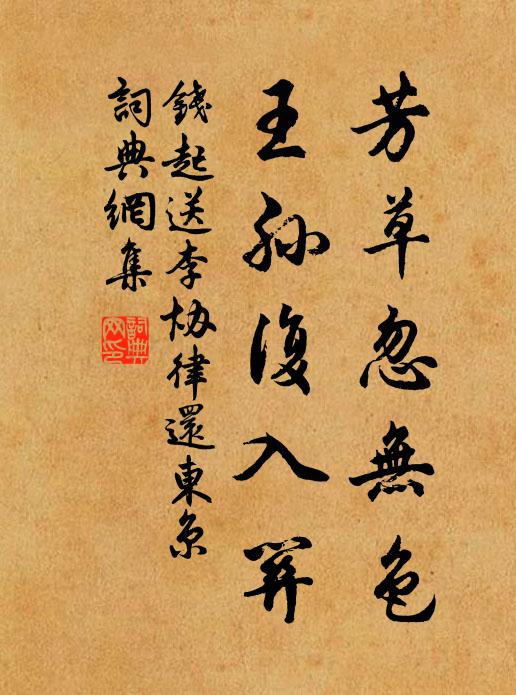 芳草忽無色
王孫復入關
錢起送李協律還東京
詞典網集
詞典網印